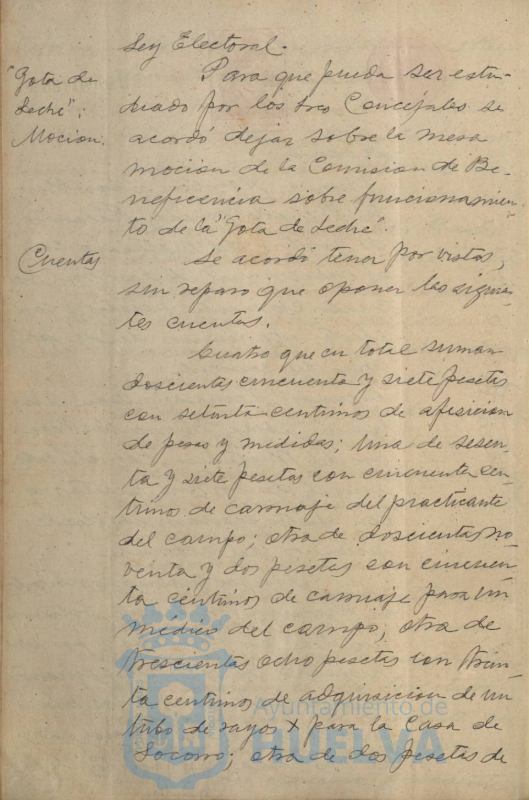 Ley Electoral.
"Gota de
Leche".
Mocion.
Para que pueda ser estu-
diado por los tres Concejales se
acordó dejar sobre la mesa
mocion de la Comision de Be-
neficencia sobre funcionamien-
to de la "Gota de Leche".
Cuentas
Se acordó tener por vistas,
sin reparo que oponer las siguien-
tes cuentas.
Cuatro que en total suman
doscientas cincuenta y siete pesetas
con setenta centimos de aficion
de pesas y medidas; una de sesen-
ta y siete pesetas con cincuenta cen-
timos de carruaje del practicante
del campo; otra de doscientas no
venta y dos pesetas con cincuen-
ta céntimos de carruaje para un
médico del campo; otra de
trescientas ocho pesetas con trein-
ta centimos de adquisicion de un
tubo de rayos X para la Casa de
Socorro; otra de dos pesetas de
Ayuntamiento de
HUELVA